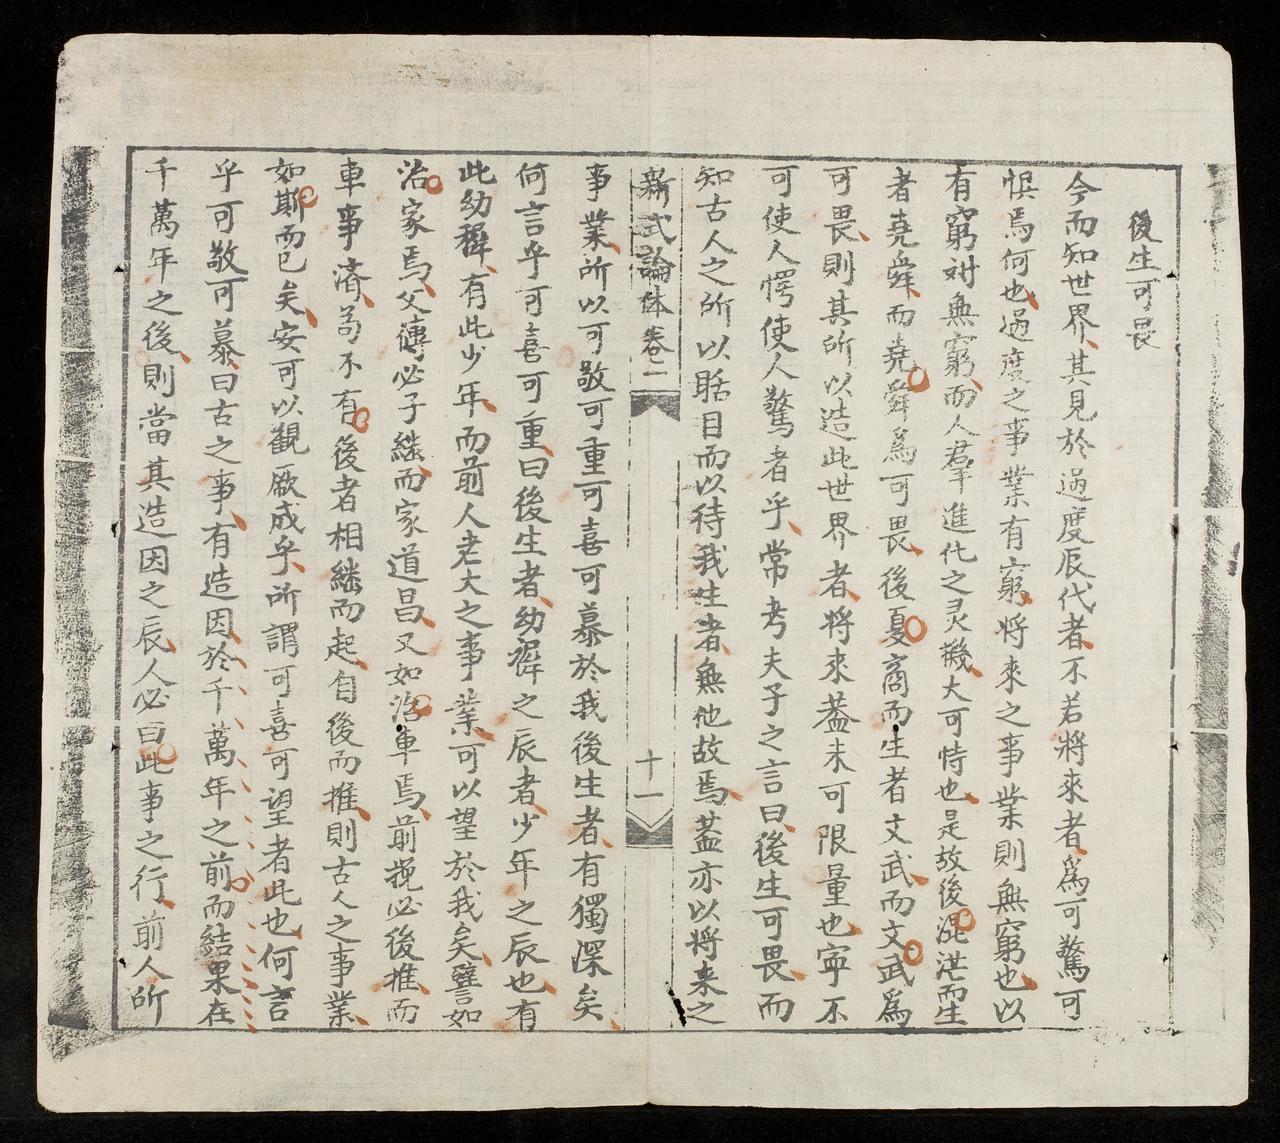 後生可畏
今而知世界其見於過度辰代者不若將來者爲可驚可
惧焉何也過度之事業有窮將來之事業則無窮也以
有窮對無窮而人羣進化之灵機大可恃也是故後混茫而生
者堯舜而堯舜爲可畏後夏商而生者文武而文武爲
可畏則其所以造此世界者將來盖未可限量也寜不
可使人愕使人驚者乎常考夫子之言曰後生可畏而
知古人之所以聒目而以待我生者無他故焉盖亦以將来之
新式論体卷二
十一
事業所以可敬可重可喜可慕於我後生者有獨深矣
何言乎可喜可重曰後生者幼穉之辰者少年之辰也有
此幼穉有此少年而前人老大之事業可以望於我矣譬如
治家焉父傳必子継而家道昌又如治車焉前挽必後推而
車事濟苟不有後者相継而起自後而推則古人之事業
如斯而已矣安可以觀厥成乎所謂可喜可望者此也何言
乎可敬可慕曰古之事有造因於千萬年之前而結果在
千萬年之後則當其造因之辰人必曰此事之行前人所